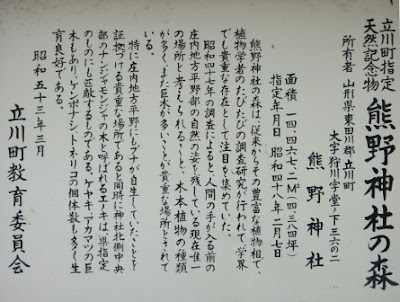 立川町指定
天然記念物
熊野神社の森
所有者 山形県東田川郡立川町
大字狩川字堂ノ下三六の二
熊野神社
面積 一四、四六七、二M²(四、三八四坪)
指定年月日 昭和四十八年二月七日
熊野神社の森は、従来からその豊富な植物相で、
植物学者のたびたびの調査研究が行われて、学界
でも貴重な存在として注目を集めていた。
昭和四十七年の調査によると、人間の手が入る前の
庄内地方平野部の自然の姿を残している現在唯一
の場所と考えられるいと、木本植物の種類
が多く、また巨木が多いことが貴重な場所とされて
いる。
特に庄内地方平野にもブナが自生していたことを
証拠づける貴重な場所であると同時に神社北側中央
部のナンジャモンジャの木と呼ばれるエノキは、県指定
のものにも匹敵するものである。ケヤキ、アカマツの巨
木もあり、ケンポナシ、トネリコの個体数も多く生
育良好である。
昭和五十三年三月
立川町教育委員会